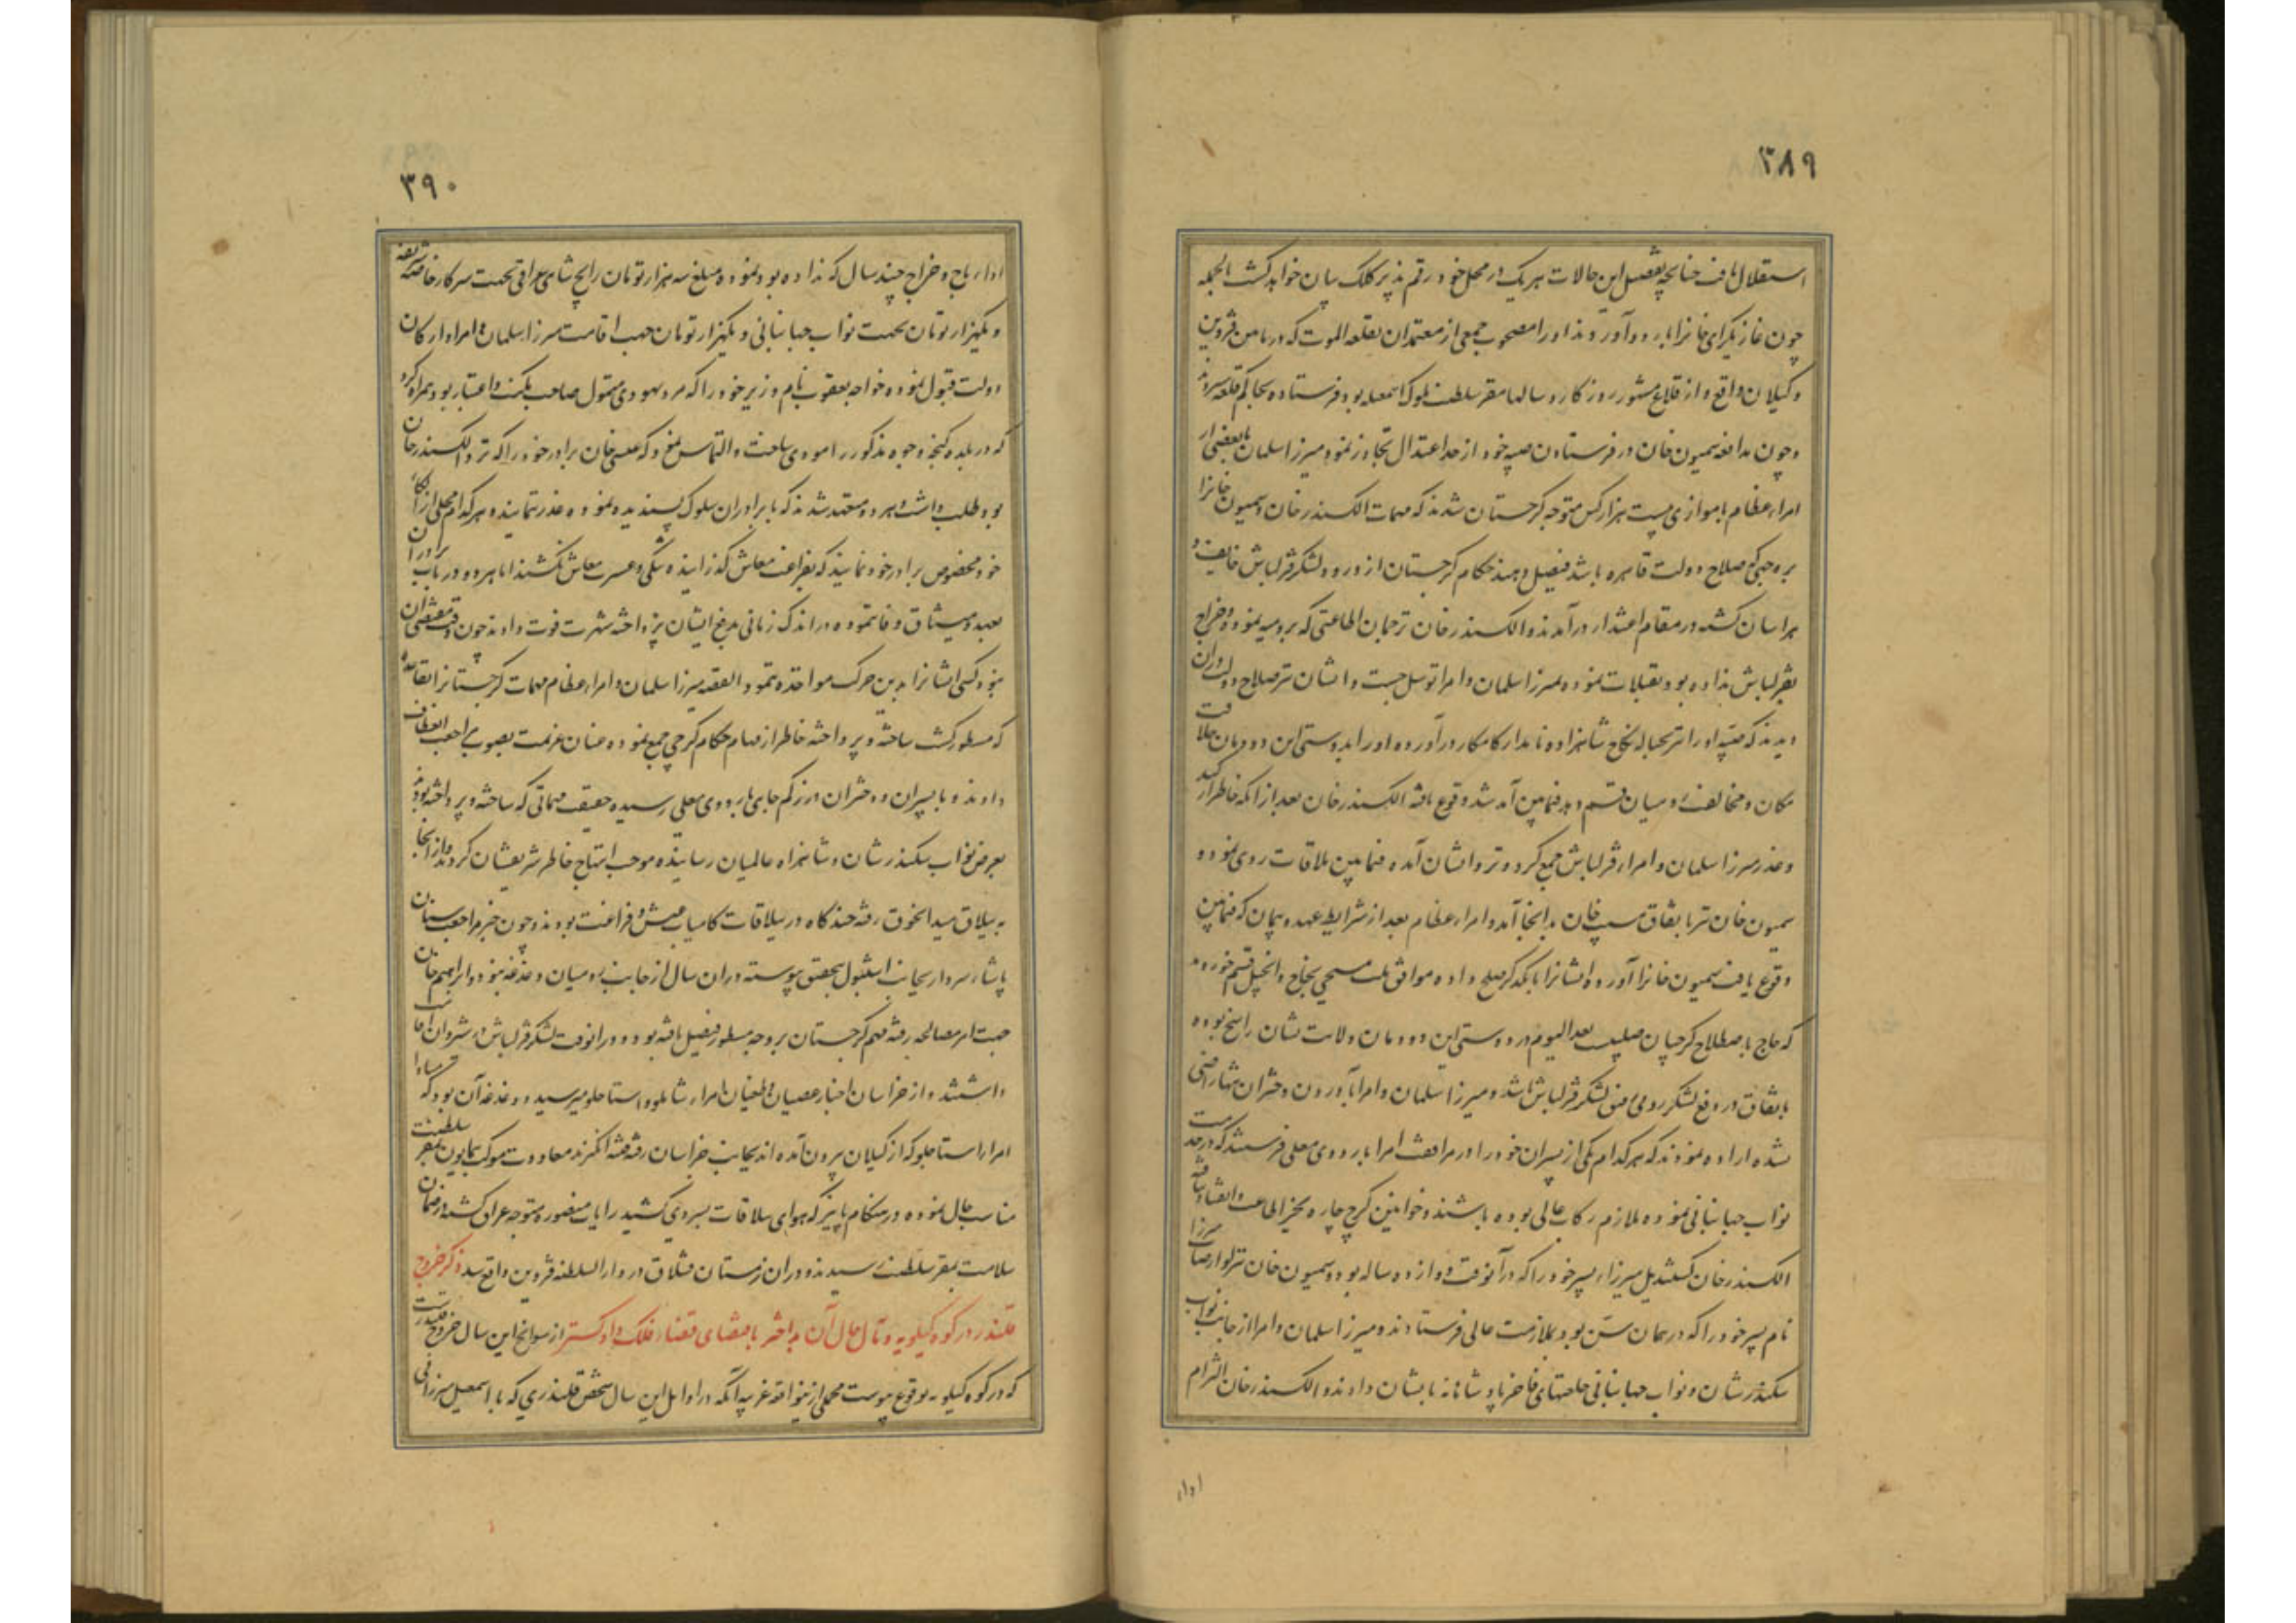 ۳۸۹
استقلال یافت چنانچه تفصیل این حالات هر یک در محل خود رقم پذیر کلک بیان خواهد گشت الجمله
چون غازیگرای خانرا باردو آوردند او را مصحوب جمعی از معتمدان بقلعه الموت که در مابین قزوین
و کیلان واقع و از قلاع مشهور روزگار و سالها مقر سلطنت ملوک اسمعیلیه بود فرستاده بحاکم قلعه سپردند
و چون مدافعه سمیون خان در فرستادن صبیه خود از حد اعتدال تجاوز نمود میرزا سلمان با بعضی از
امراء عظام با موازی بیست هزار کس متوجه کرجستان شدند که مهمات الکسندر خان و سمیون خانرا
بر وجهی که صلاح دولت قاهره باشد فیصل دهند حکام کرجستان از ورود لشکر قزلباش خایف و
هراسان گشته در مقام اعتذار درآمدند و الکسندر خان ترجمان اطاعتی که برومیه نموده و خراج
بقزلباش نداده بود تقبلات نموده بمیرزا سلمان و امرا توسل جست و ایشان نیز صلاح دولت در آن
دیدند که صبیه او را نیز بحباله نکاح شاهزاده نامدار کامکار درآورده او را بدوستی این دودمان خلافت
مکان و مخالفت رومیان قسم دهند فیمابین آمد شد وقوع یافته الکسندر خان بعد از آنکه خاطر از کید
و غدر میرزا سلمان و امراء قزلباش جمع کرد و نزد ایشان آمده فیمابین ملاقات روی نمود و
سمیون خان نیز باتفاق مسیب خان بدانجا آمد و امراء عظام بعد از شرایط عهد و پیمان که فیمابین
وقوع یافت سمیون خانرا آورده ایشانرا با یکدیگر صلح داده موافق ملت مسیحی بخاج و انجیل قسم خوردند
که خاج باصطلاح کرجیان صلیب بعد الیوم در دوستی این دودمان ولایت نشان راسخ بوده
باتفاق در دفع لشکر رومی متفق لشکر قزلباش باشند و میرزا سلمان و امرا بآوردن دختران تنها راضی
نشده اراده نمودند که هر کدام یکی از پسران خود را در مرافقت امرا باردوی معلی فرستند که در خدمت
نواب جهانبانی نموده ملازم رکاب عالی بوده باشند و خوانین کرج چاره بجز اطاعت و انقیاد نیافته
الکسندر خان کستندیل میرزا، پسر خود را که در آنوقت دوازده ساله بود و سمیون خان نیز لوارصاب میرزا
نام پسر خود را که در همان سن بود بملازمت عالی فرستادند و میرزا سلمان و امرا از جانب نواب
سکندر شان و نواب جهانبانی خلعتهای فاخر پادشاهانه بایشان دادند و الکسندر خان التزام
اداء
۳۹۰
اداء باج و خراج چند سال که نداده بود نموده مبلغ سه هزار تومان رایج شاهی عراقی تحت سرکار خاصه شریفه
و یکهزار تومان بجهت نواب جهانبانی و یکهزار تومان جهت اقامت میرزا سلمان و امراء و ارکان
دولت قبول نموده خواجه یعقوب نام وزیر خود را که مرد یهودی متمول صاحب مکنت و اعتبار بود همراه کرد
که در بلده کنجه وجوه مذکور را مودی ساخت و التماس نمود که عیسی خان برادر خود را که نزد الکسندر خان
بود طلب داشت و هر دو متعهد شدند که با برادران سلوک پسندیده نموده غدر ننمایند و هر کدام محلی از الکاء
خود مخصوص برادر خود نمایند که بفراغت معاش گذرانیده تنگی و عسرت معاش نکشند اما هر دو در باب برادران
بعهد و میثاق وفا ننموده در اندک زمانی بدفع ایشان پرداخته شهرت فوت دادند چون وقت مقتضی آن
نبود کسی ایشانرا بدین حرکت مواخذه ننمود القصه میرزا سلمان و امراء عظام مهمات کرجستانرا بقاعده
که مسطور گشت ساخته و پرداخته خاطر از مهام حکام کرجی جمع نموده عنان عزیمت بصوب مراجعت انعطاف
دادند و با پسران و دختران در زکم جای باردوی معلی رسیده حقیقت مهماتی که ساخته و پرداخته بودند
بعرض نواب سکندر شان و شاهزاده عالمیان رسانیده موجب ابتهاج خاطر شریفشان گردید و از آنجا
به ییلاق میدانجوق رفته چند گاه در ییلاقات کامیاب عیش و فراغت بودند و چون خبر مراجعت سنان
پاشاء سردار بجانب استنبول بتحقق پیوسته در ان سال از جانب رومیان دغدغه نبود و ابراهیم خان
جهت امر مصالحه رفته مهم کرجستان بر وجه مسطور فیصل یافته بود و در آنوقت لشکر قزلباش در شروان اقامت
داشتند و از خراسان اخبار عصیان و طغیان امراء شاملو و استاجلو میرسید و دغدغه آن بود که مبادا
امراء استاجلو که از کیلان بیرون آمده اند بجانب خراسان رفته فتنه انگیزند معاودت موکب همایون بمقر سلطنت
مناسب حال نموده در هنگام پاییز که هوای ییلاقات بسردی کشید رایات منصوره متوجه عراق گشته در ضمان
سلامت بمقر سلطنت رسیدند و در ان زمستان قشلاق در دار السلطنه قزوین واقع شد ذکر خروج
قلندر در کوه کیلویه و مآل حال آن بد اختر باقتضای قضاء فلک داد گستر از سوانح این سال خروج قلندریست
که در کوه کیلویه بوقوع پیوست مجملی از ینواقعه غریبه آنکه در اوایل این سال شخص قلندری که با اسمعیل میرزا فی